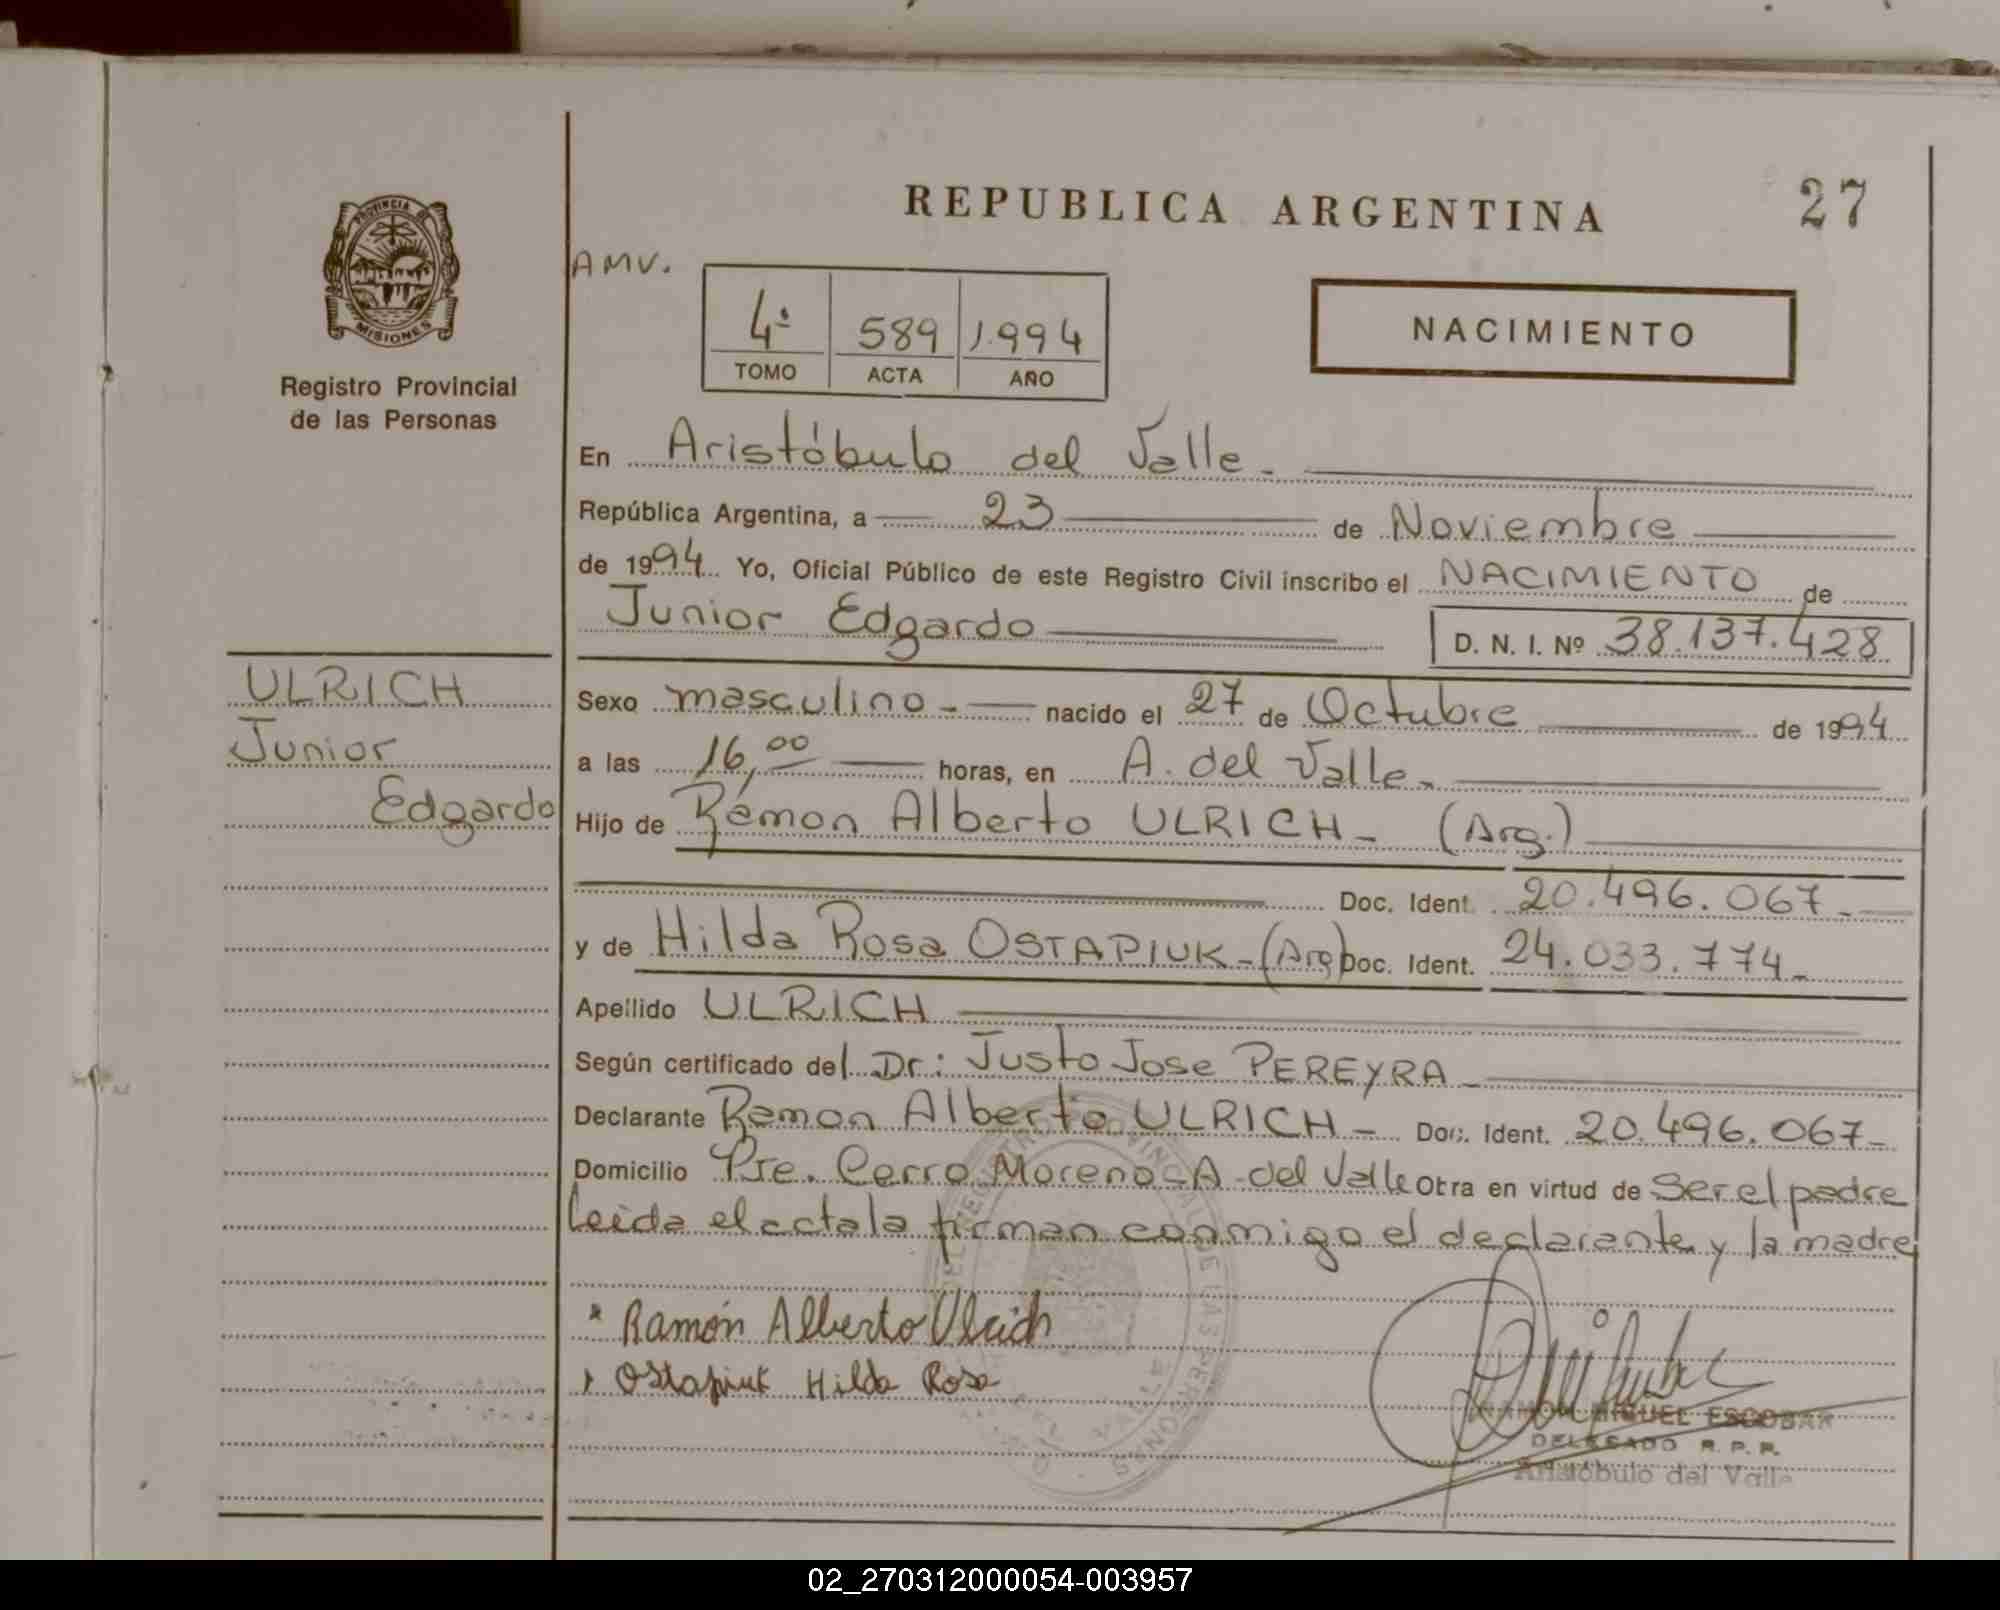 REPUBLICA ARGENTINA
27
PROVINCIA DE
MISIONES
Registro Provincial
de las Personas
AMV.
4ª 589 1.994
TOMO ACTA AÑO
NACIMIENTO
En Aristóbulo del Valle.
República Argentina, a 23 de Noviembre
de 1994 Yo, Oficial Público de este Registro Civil inscribo el NACIMIENTO de
Junior Edgardo D. N. I. Nº 38.137.428
ULRICH
Junior
Edgardo
Sexo masculino.- nacido el 27 de Octubre de 1994
a las 16,00 horas, en A. del Valle.
Hijo de Ramon Alberto ULRICH- (Arg.)
Doc. Ident. 20.496.067.-
y de Hilda Rosa OSTAPIUK-(Arg) Doc. Ident. 24.033.774-
Apellido ULRICH
Según certificado del Dr: Justo Jose PEREYRA-
Declarante Ramon Alberto ULRICH- Doc. Ident. 20.496.067-
Domicilio Pje. Cerro Moreno-A-del Valle Otra en virtud de Ser el padre
Leida el acta la firman conmigo el declarante y la madre
Ramón Alberto Ulrich
Ostapiuk Hilda Rosa
RAMON MIGUEL ESCOBAR
DELEGADO R. P. P.
Aristóbulo del Valle
02_270312000054-003957